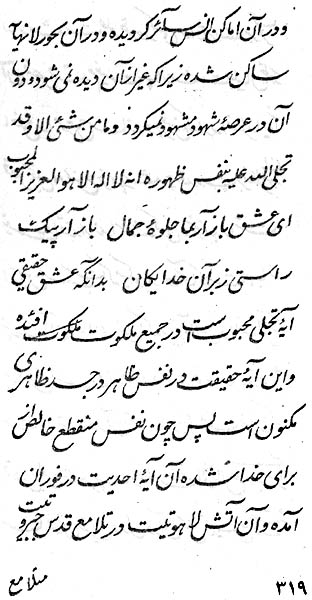 و در آن اماکن انس سائر گردیده و در آن بحور لانهایه
ساکن شده زیرا که غیر از آن دیده نمی شود و دون
آن در عرصهٔ شهود مشهود نمیگردد و ما من شئی الا و قد
تجلی الله علیه بنفس ظهوره انه لا اله الا هو العزیز المحبوب
ای عشق باز آر بما جلوهٔ جمال باز آر پیک
راستی زبر آن خدایکان بدانکه عشق حقیقی
آیهٔ تجلی محبوب است در جمیع ملکوت ملکوت افئده
و این آیهٔ حقیقت در نفس طاهر در جسد ظاهری
مکنون است پس چون نفس منقطع خالص از
برای خدا شده آن آیهٔ احدیت در فوران
آمده و آن آتش لاهوتیت در تلامع قدس جبروتیت
متلامع
۳۱۹